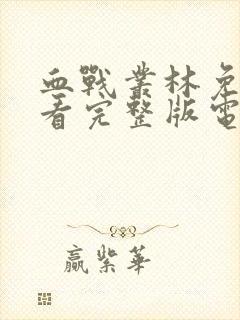 血戰叢林免
看完整版電
贏紫華